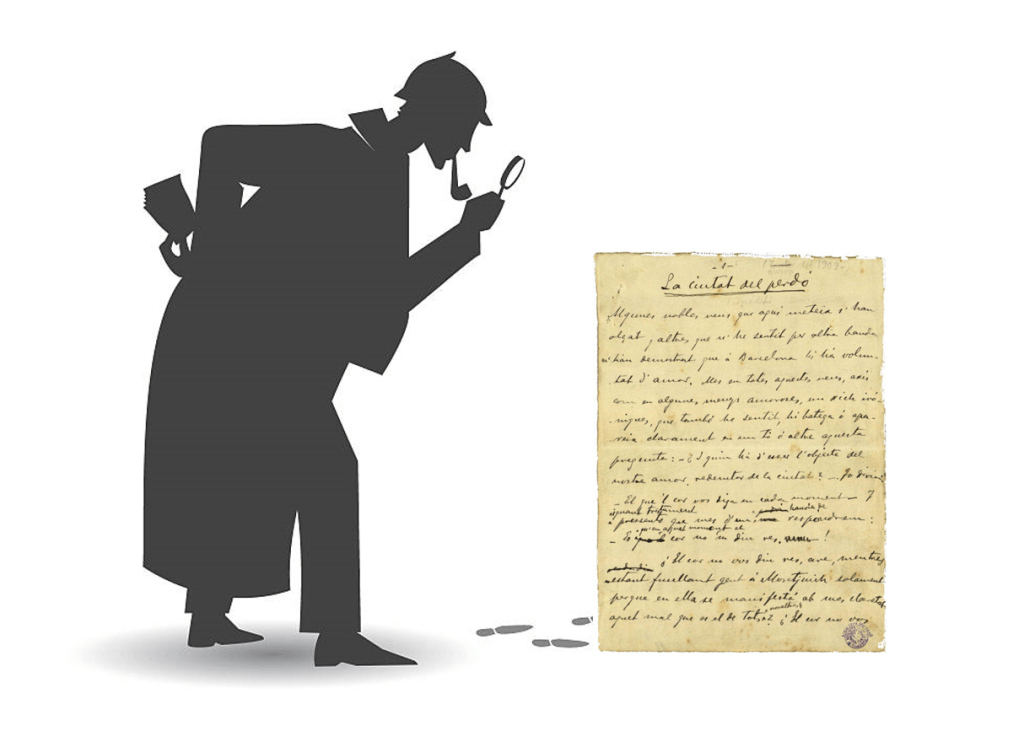 -1-
La ciutat del perdó
Algunes nobles veus que aquí mateix s'han
alçat y altres que n'he sentit per altra banda
m'han demostrat que á Barcelona hi há volun-
tat d'amor. Mes en totes aquestes veus, axis
com en algunes, menys amoroses, un xich iró-
niques, que també he sentit, hi batega ó apa-
reix clarament en un tó ó altre aquesta
pregunta: - ¿I quin há d'esser l'objecte del
nostre amor, redemtor de la ciutat? - Jo diria:
- El que'l cor vos diga en cada moment - I
presents que mes d'un respondrem:
- cor no 'm diu res, !
¡El cor no vos diu res, are, mentres
estant fusellant gent á Montjuich solament
perque en ella se manifestá ab mes claretat
aquet mal que es el de tots ¿El cor no vos